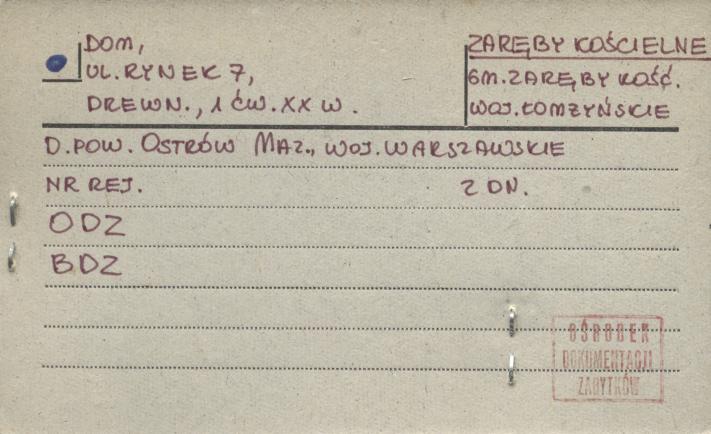 DOM,
UL. RYNEK 7,
DREWN., 1 ĆW. XX W.
ZARĘBY KOŚCIELNE
GM. ZARĘBY KOŚĆ.
WOJ. ŁOMŻYŃSKIE
D. POW. OSTRÓW MAZ., WOJ. WARSZAWSKIE
NR REJ. Z DN.
ODZ
BDZ
OŚRODEK
DOKUMENTACJI
ZABYTKÓW